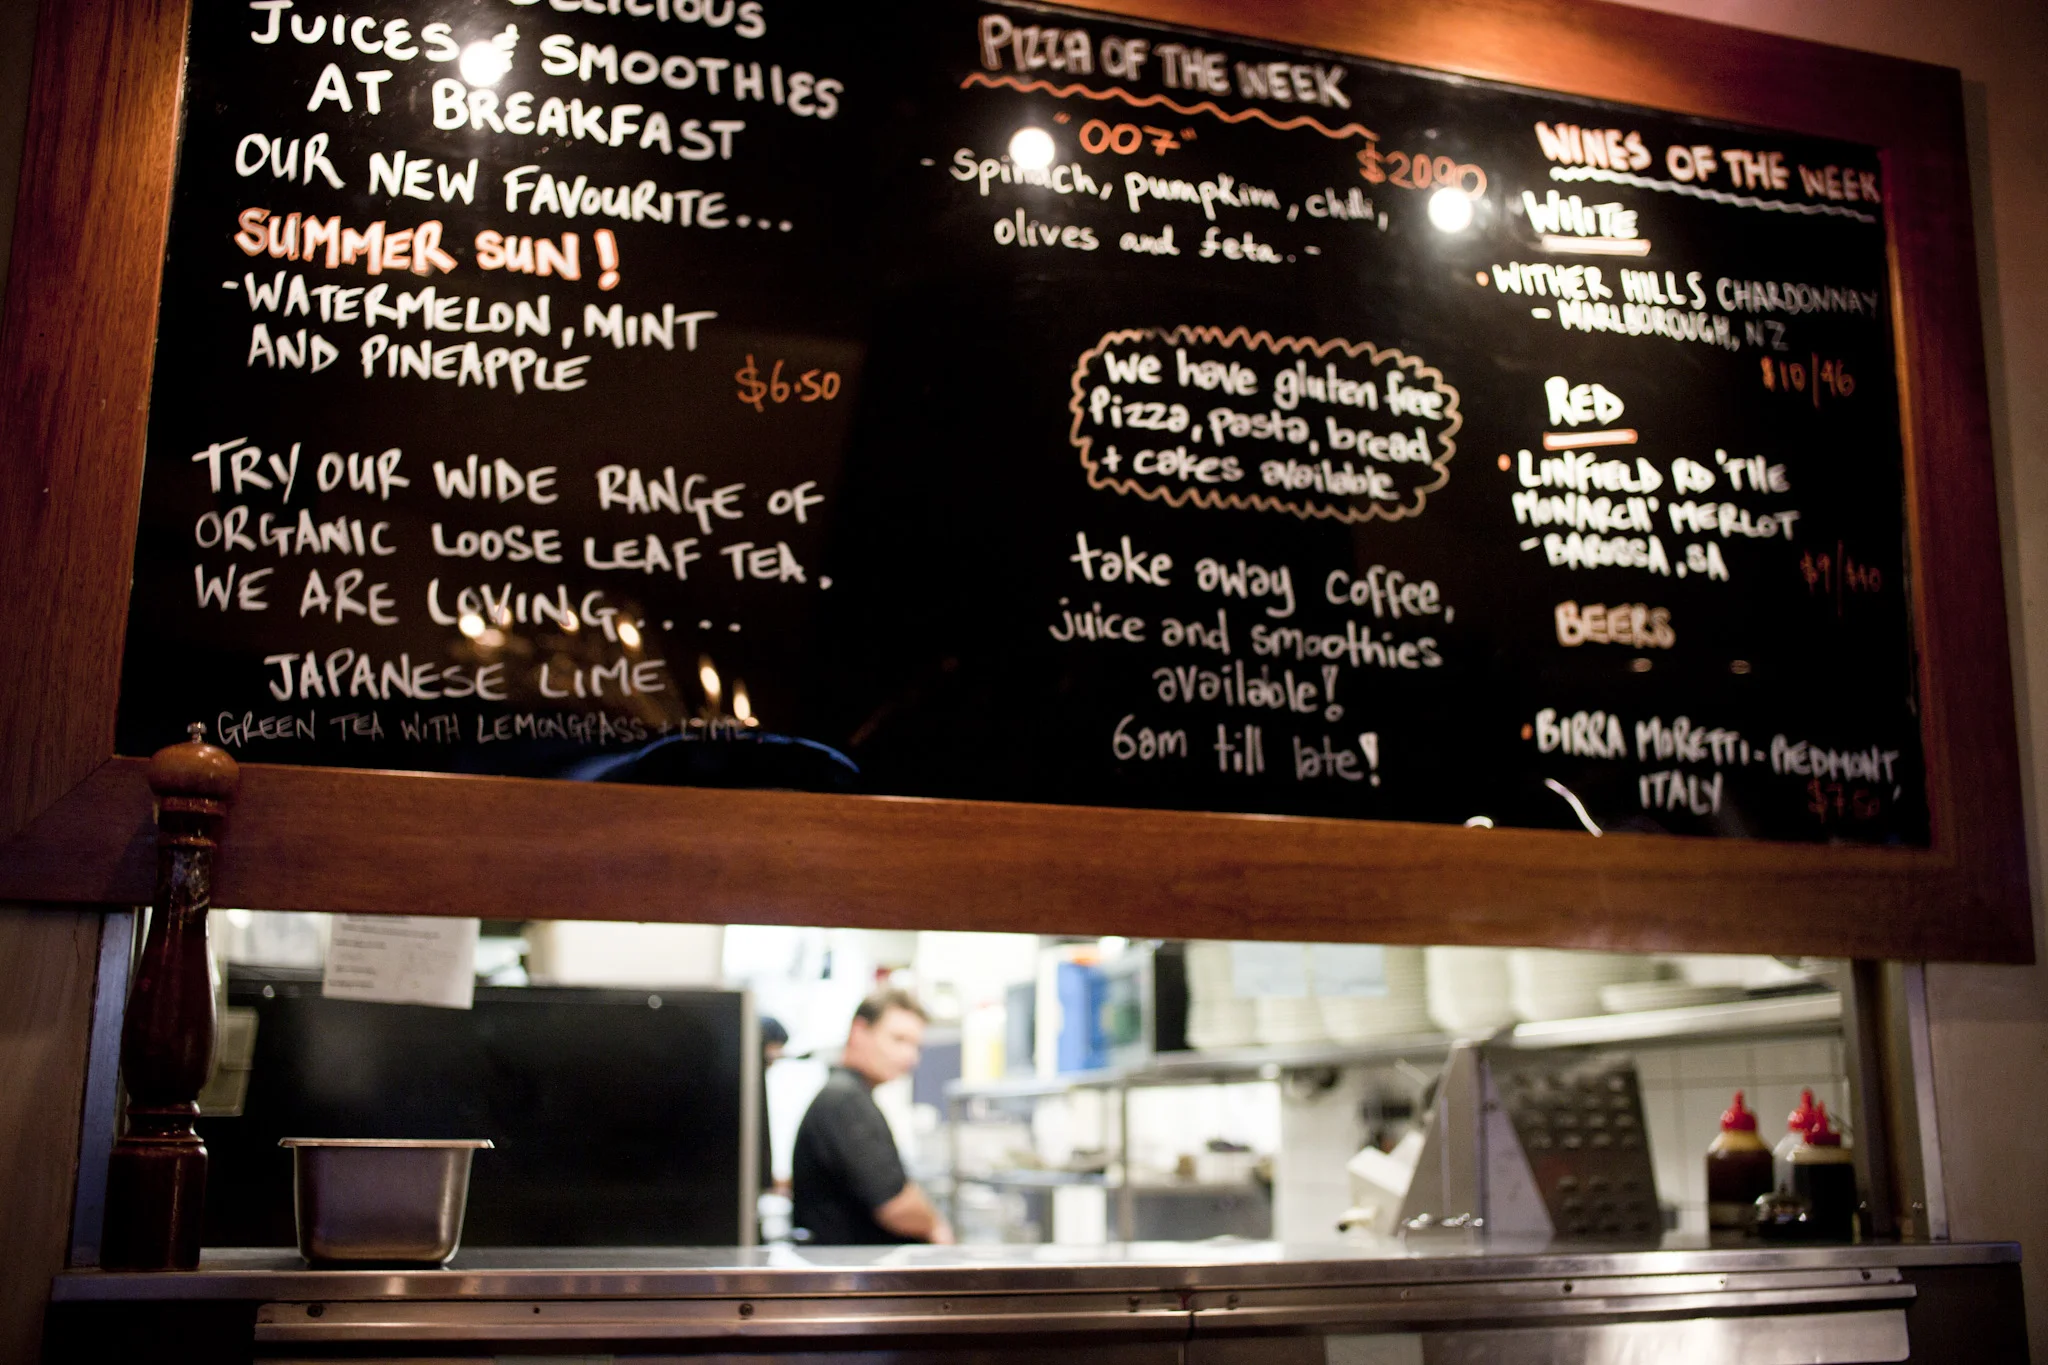 DELICIOUS
JUICES & SMOOTHIES
AT BREAKFAST
OUR NEW FAVOURITE...
SUMMER SUN!
-WATERMELON, MINT
AND PINEAPPLE
$6.50
TRY OUR WIDE RANGE OF
ORGANIC LOOSE LEAF TEA.
WE ARE LOVING.....
JAPANESE LIME
GREEN TEA WITH LEMONGRASS + LIME.
PIZZA OF THE WEEK
"007"
$20.90
- Spinach, pumpkin, chilli,
olives and feta. -
We have gluten free
Pizza, pasta, bread
+ cakes available
take away coffee,
juice and smoothies
available!
6am till late!
WINES OF THE WEEK
WHITE
• WITHER HILLS CHARDONNAY
- MARLBOROUGH, NZ
$10/46
RED
• LINFIELD RD 'THE
MONARCH' MERLOT
- BAROSSA, SA
$9/$40
BEERS
• BIRRA MORETTI - PIEDMONT,
ITALY